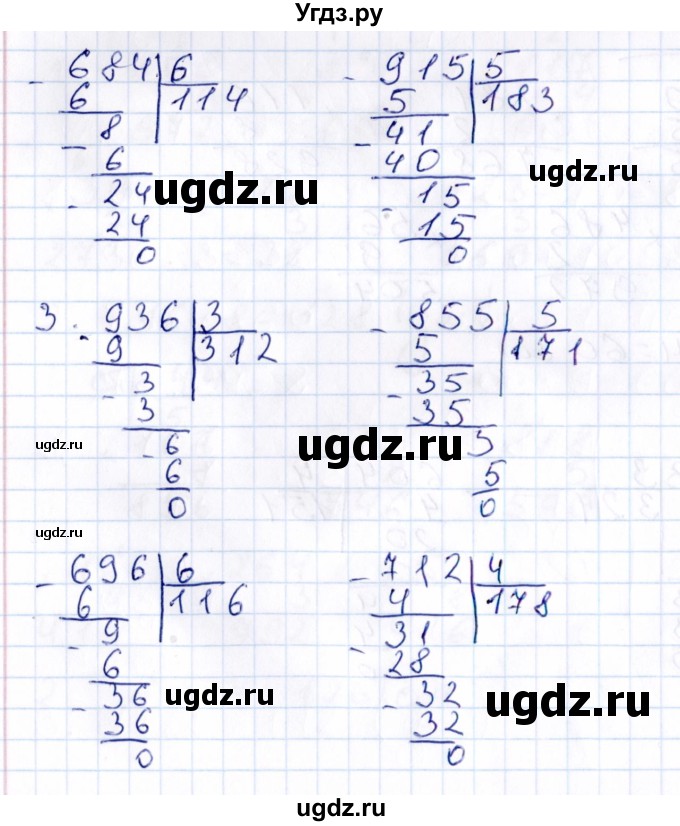 Угдз.ру
- 684 6
6 114
8
- 6
24
- 24
0
ugdz.ru
- 915 5
5 183
- 41
40
- 15
15
0
ugdz.ru
3. - 936 3
9 312
- 3
3
- 6
6
0
ugdz.ru
ugdz.ru
- 855 5
5 171
- 35
35
5
5
0
ugdz.ru
ugdz.ru
- 696 6
6 116
- 9
6
- 36
36
0
ugdz.ru
- 712 4
4 178
- 31
28
- 32
32
0
ugdz.ru
ugdz.ru